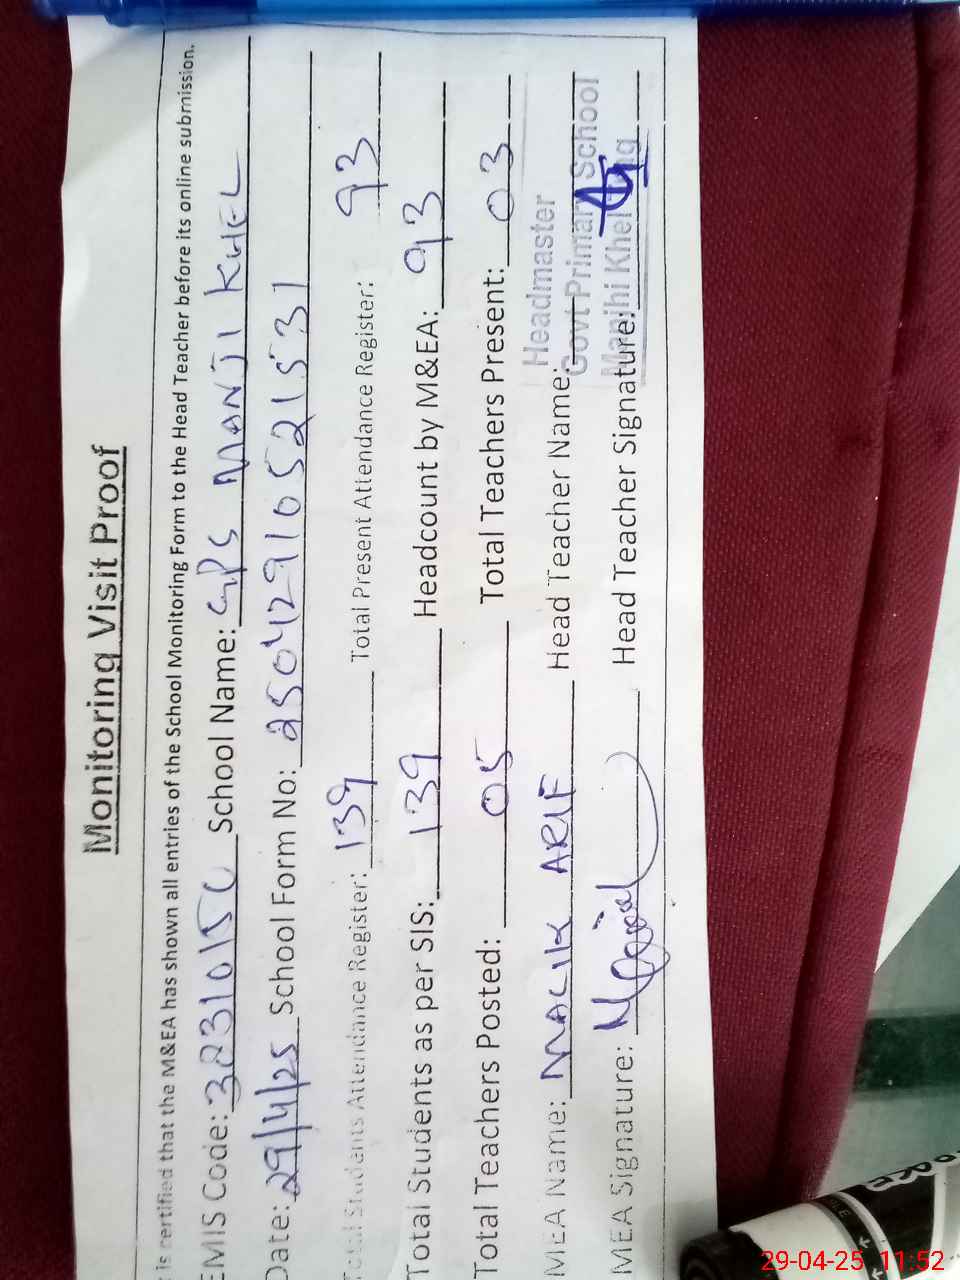 Monitoring Visit Proof
is certified that the M&EA has shown all entries of the School Monitoring Form to the Head Teacher before its online submission.
EMIS Code: School Name: GPS MANJI KHEL
Date: 29/4/25 School Form No: 25042910521531
Total Students Attendance Register: 139 Total Present Attendance Register: 93
Total Students as per SIS: 139 Headcount by M&EA: 93
Total Teachers Posted: 05 Total Teachers Present: 03
MEA Name: MALIK ARIF Head Teacher Name:
MEA Signature: Head Teacher Signature:
Headmaster
Govt Primary School
Manjhi Khel
29-04-25 11:52